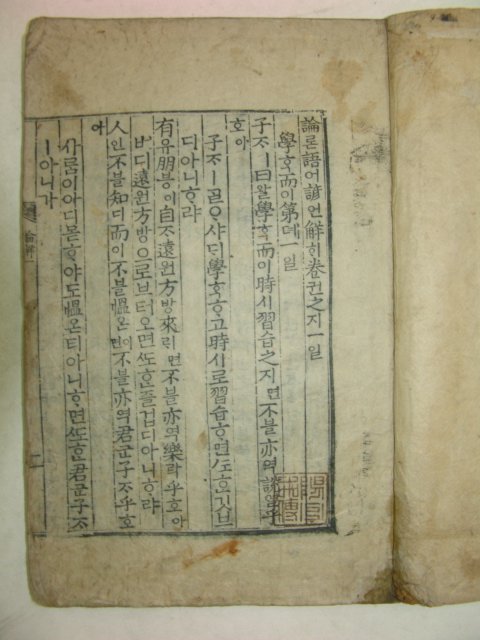 論론語어諺언解ᄒᆡ卷권之지一일
學ᄒᆞᆨ而이第뎨一일
子ᄌᆞㅣ曰왈學ᄒᆞᆨ而이時시習습之지면不블亦역說열乎
호아
子ᄌᆞㅣᄀᆞᆯᄋᆞ샤ᄃᆡ學ᄒᆞᆨᄒᆞ고時시로習습ᄒᆞ면ᄯᅩᄒᆞᆫ깃브
디아니ᄒᆞ랴
有유朋붕이自ᄌᆞ遠원方방來ᄅᆡ면不블亦역樂락乎호아
버디遠원方방으로브터오면ᄯᅩᄒᆞᆫ즐겁디아니ᄒᆞ랴
人인不블知디而이不블慍온이면不블亦역君군子ᄌᆞ乎호
아
사ᄅᆞᆷ이아디몯ᄒᆞ야도慍온티아니ᄒᆞ면ᄯᅩᄒᆞᆫ君군子ᄌᆞ
ㅣ아니가
論解一